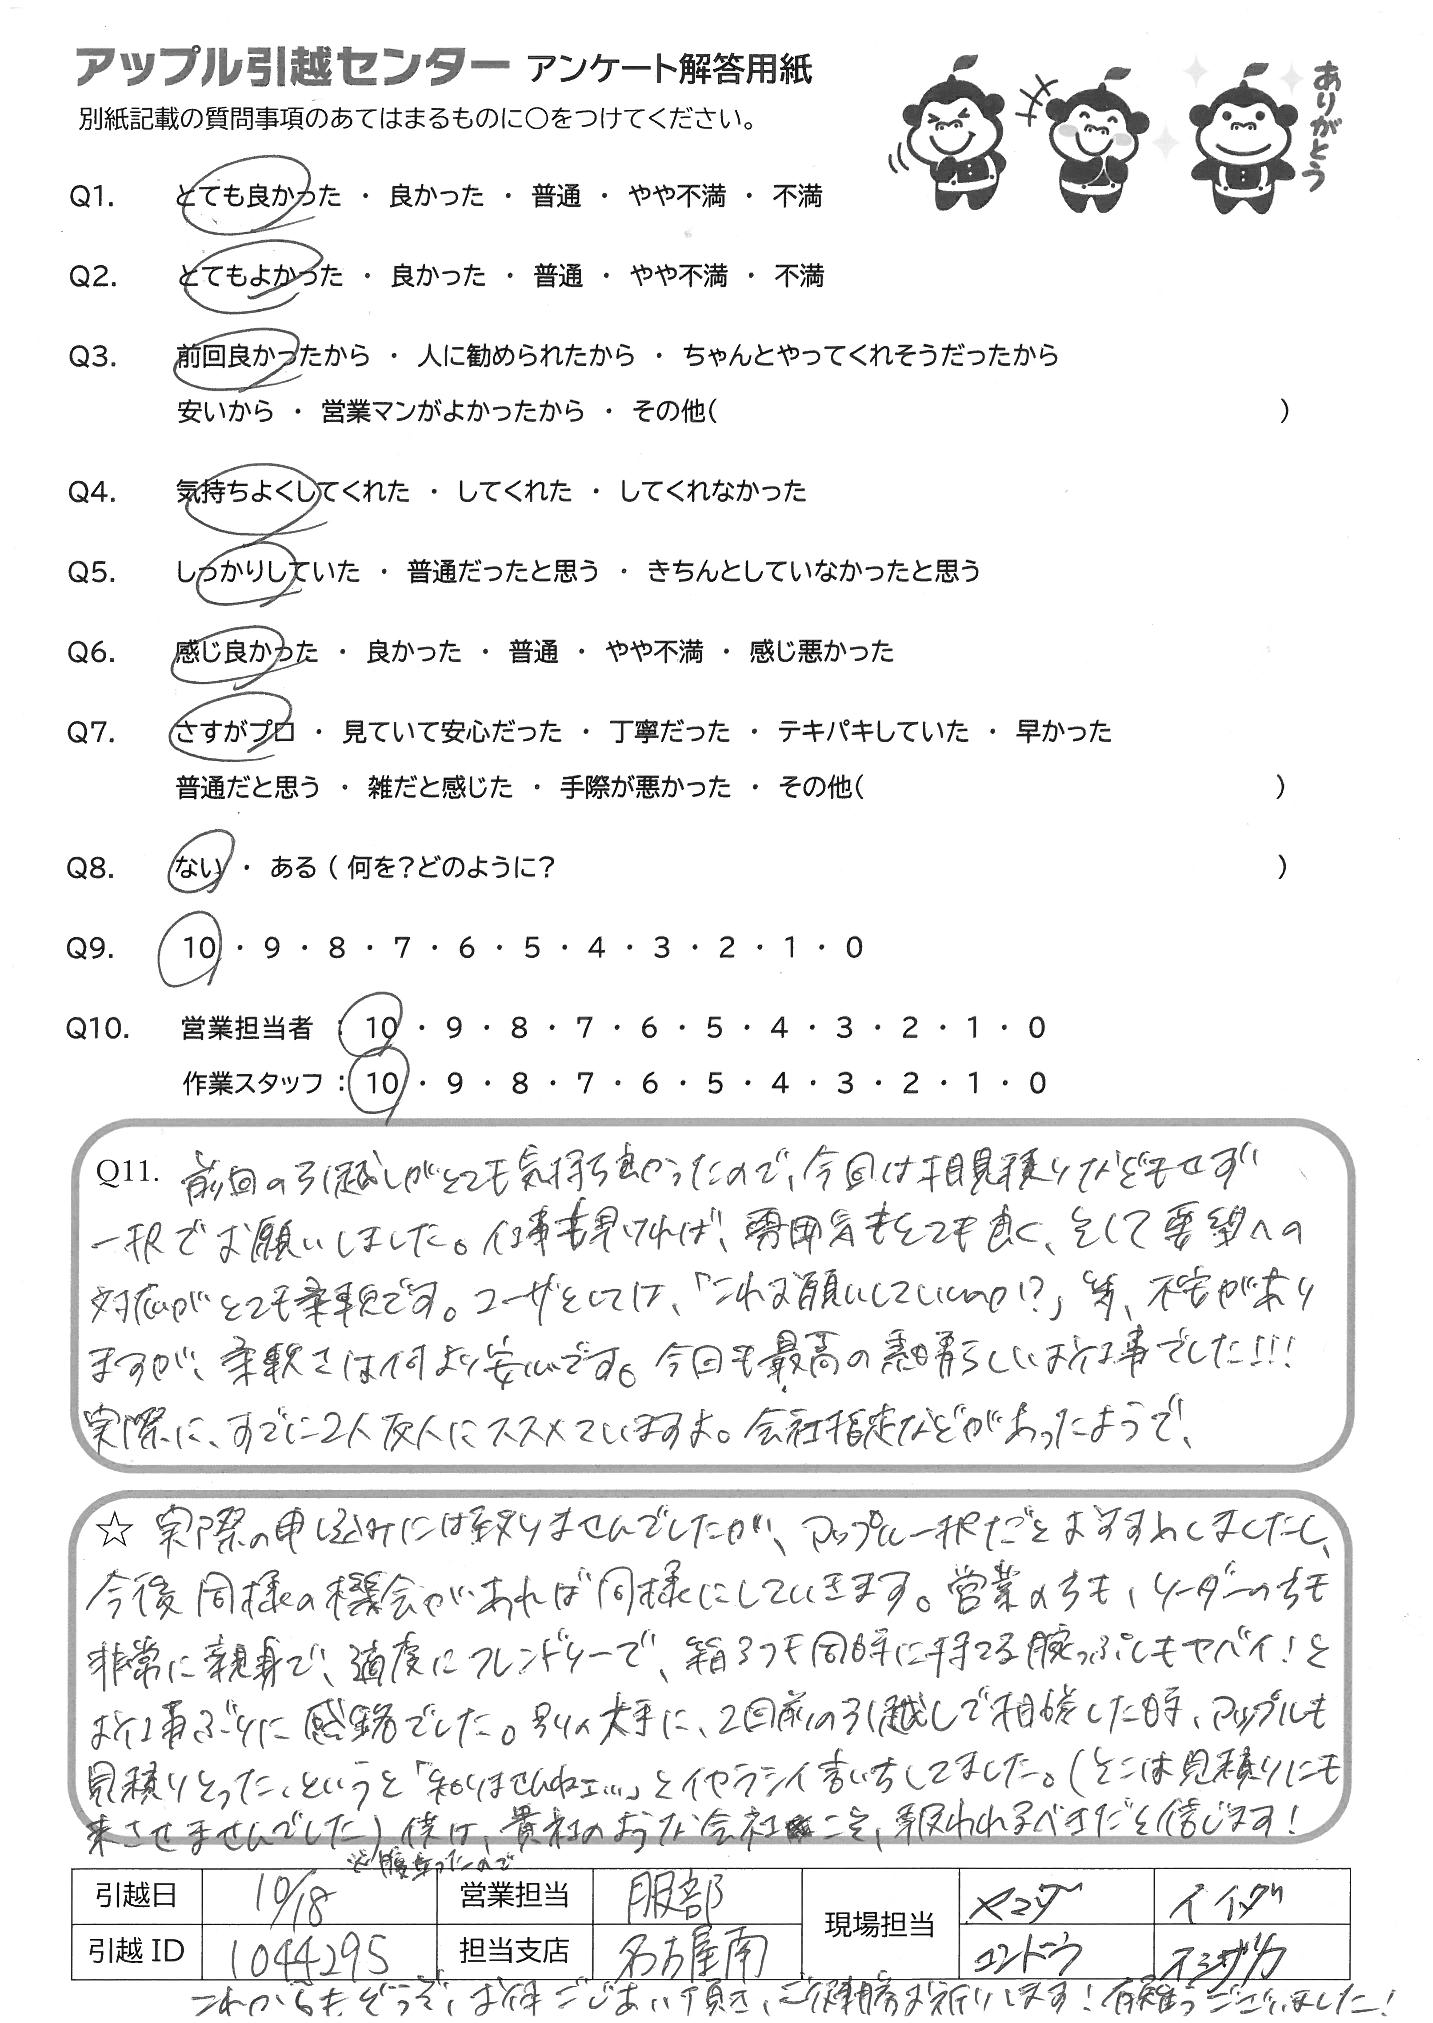 アップル引越センター アンケート解答用紙
ありがとう
別紙記載の質問事項のあてはまるものに○をつけてください。
Q1. とても良かった ・ 良かった ・ 普通 ・ やや不満 ・ 不満
Q2. とてもよかった ・ 良かった ・ 普通 ・ やや不満 ・ 不満
Q3. 前回良かったから ・ 人に勧められたから ・ ちゃんとやってくれそうだったから
安いから ・ 営業マンがよかったから ・ その他( )
Q4. 気持ちよくしてくれた ・ してくれた ・ してくれなかった
Q5. しっかりしていた ・ 普通だったと思う ・ きちんとしていなかったと思う
Q6. 感じ良かった ・ 良かった ・ 普通 ・ やや不満 ・ 感じ悪かった
Q7. さすがプロ ・ 見ていて安心だった ・ 丁寧だった ・ テキパキしていた ・ 早かった
普通だと思う ・ 雑だと感じた ・ 手際が悪かった ・ その他( )
Q8. ない ・ ある ( 何を?どのように? )
Q9. 10 ・ 9 ・ 8 ・ 7 ・ 6 ・ 5 ・ 4 ・ 3 ・ 2 ・ 1 ・ 0
Q10. 営業担当者 : 10 ・ 9 ・ 8 ・ 7 ・ 6 ・ 5 ・ 4 ・ 3 ・ 2 ・ 1 ・ 0
作業スタッフ : 10 ・ 9 ・ 8 ・ 7 ・ 6 ・ 5 ・ 4 ・ 3 ・ 2 ・ 1 ・ 0
Q11. 前回の引越しがとても気持ち良かったので、今回は相見積りなどもせず
一択でお願いしました。仕事も早ければ、雰囲気もとても良く、そして要望への
対応がとても柔軟です。ユーザとしては、「これお願いしていいのか!?」等、不安があり
ますが、柔軟さは何より安心です。今回も最高の素晴らしいお仕事でした!!!
実際に、すでに2人友人にススメていますよ。会社指定などがあったようで、
☆ 実際の申し込みには至りませんでしたが、アップル一択だとおすすめしましたし、
今後同様の機会があれば同様にしていきます。営業の方も、リーダーの方も
非常に親身で、適度にフレンドリーで、箱3つも同時に持てる腕っぷしもヤバイ!と
お仕事ぶりに感銘でした。別の大手に、2回前の引越しで相談した時、アップルも
見積りとった、というと「知りませんねェ…」とイヤラシイ言い方してました。(そこは見積りにも
来させませんでした)僕は、貴社のような会社こそ、報われるべきだと信じます!
※腹立ったので
引越日 10/18 営業担当 服部 現場担当 ヤマダ イイダ
引越 ID 1044295 担当支店 名古屋南 コンドウ イシザカ
これからもどうぞ、お体ご自愛頂き、ご健勝お祈りします!有難うございました!